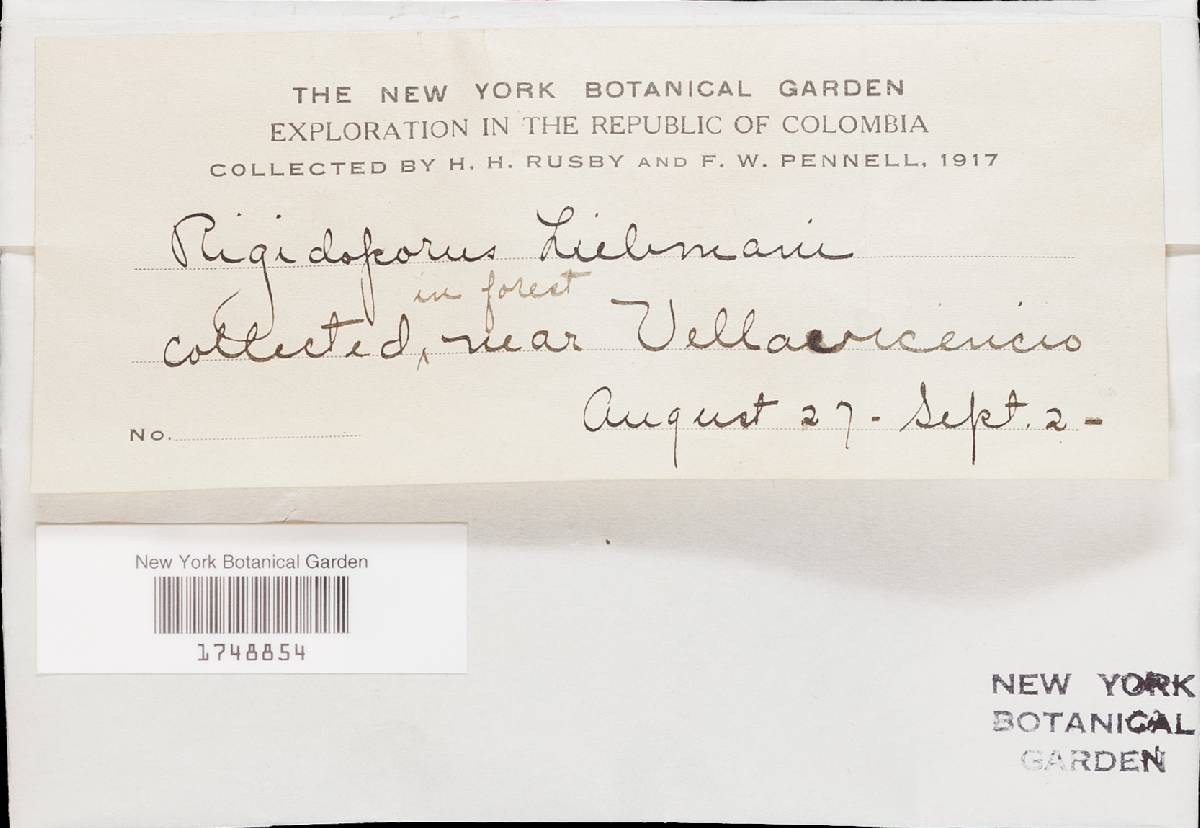 THE NEW YORK BOTANICAL GARDEN
EXPLORATION IN THE REPUBLIC OF COLOMBIA
COLLECTED BY H. H. RUSBY AND F. W. PENNELL, 1917
Rigidoporus Liebmani
in forest
collected, near Vellavicencio
August 27 - Sept. 2 -
No.
New York Botanical Garden
1748854
NEW YORK
BOTANICAL
GARDEN